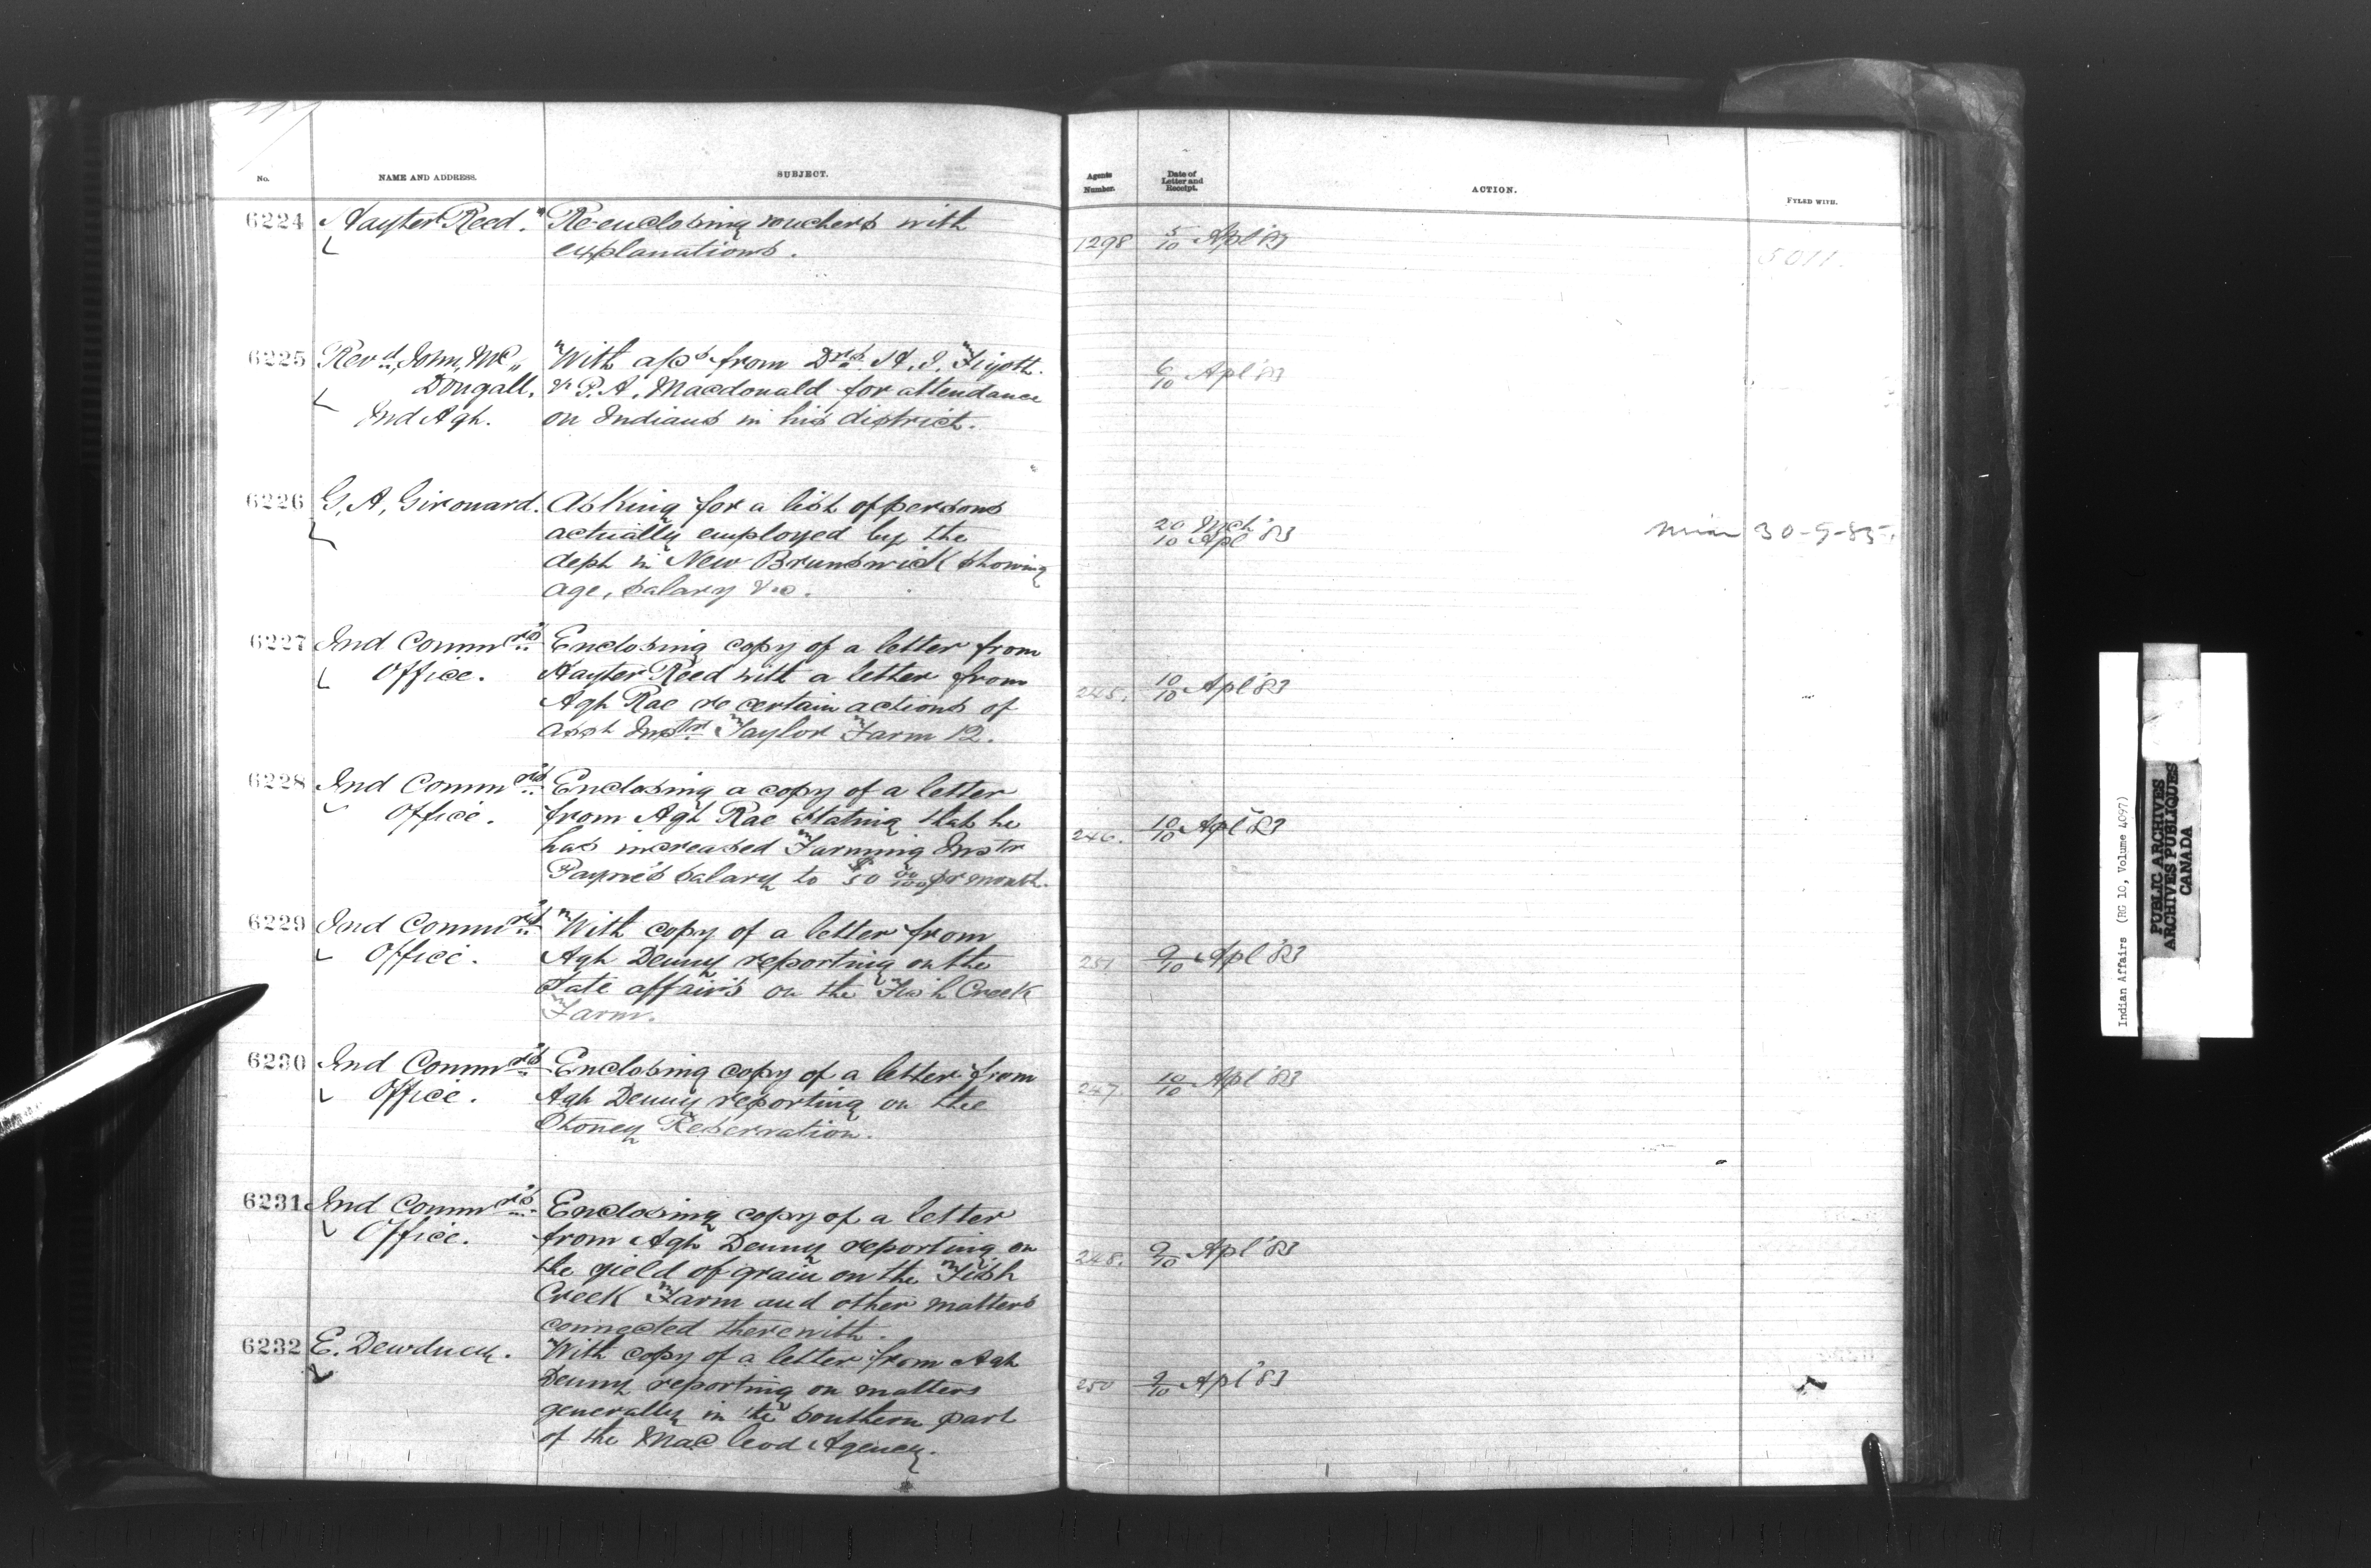 No.
NAME AND ADDRESS.
SUBJECT.
Agents Number.
Date of Letter and Receipt.
ACTION.
FYLED WITH.
6224 Hayter Reed. Re-enclosing vouchers with
explanations.
1298 5/10 Apl '83
5011.
6225 Revd. John Mc
Dougall.
Ind Agt.
With a/cs from Drs. H. J.
& P. A. Macdonald for attendance
on Indians in his district.
6/10 Apl '83
6226 G. A. Girouard. Asking for a list of persons
actually employed by the
dept in New Brunswick showing
age, salary &c.
20 Mch
10 Apl '83
30-5-85
6227 Ind Commr's
Office.
Enclosing copy of a letter from
Hayter Reed with a letter from
Agt Rae re certain actions of
Asst Instr Taylor Farm 12.
245. 10/10 Apl '83
6228 Ind Commr's
Office.
Enclosing a copy of a letter
from Agt Rae stating that he
has increased Farming Instr
Payne's salary to $50 00/100 pr month.
246. 10/10 Apl '83
6229 Ind Commr's
Office.
With copy of a letter from
Agt Denny reporting on the
State affairs on the Fish Creek
Farm.
251 9/10 Apl '83
6230 Ind Commr's
Office.
Enclosing copy of a letter from
Agt Denny reporting on the
Stoney Reservation.
247. 10/10 Apl '83
6231 Ind Commr's
Office.
Enclosing copy of a letter
from Agt Denny reporting on
the yield of grain on the Fish
Creek Farm and other matters
connected therewith.
248. 9/10 Apl '83
6232 E. Dewdney. With copy of a letter from Agt
Denny reporting on matters
generally in the southern part
of the Mac leod Agency.
250 9/10 Apl '83
Indian Affairs (RG 10, Volume 4097)
PUBLIC ARCHIVES
ARCHIVES PUBLIQUES
CANADA